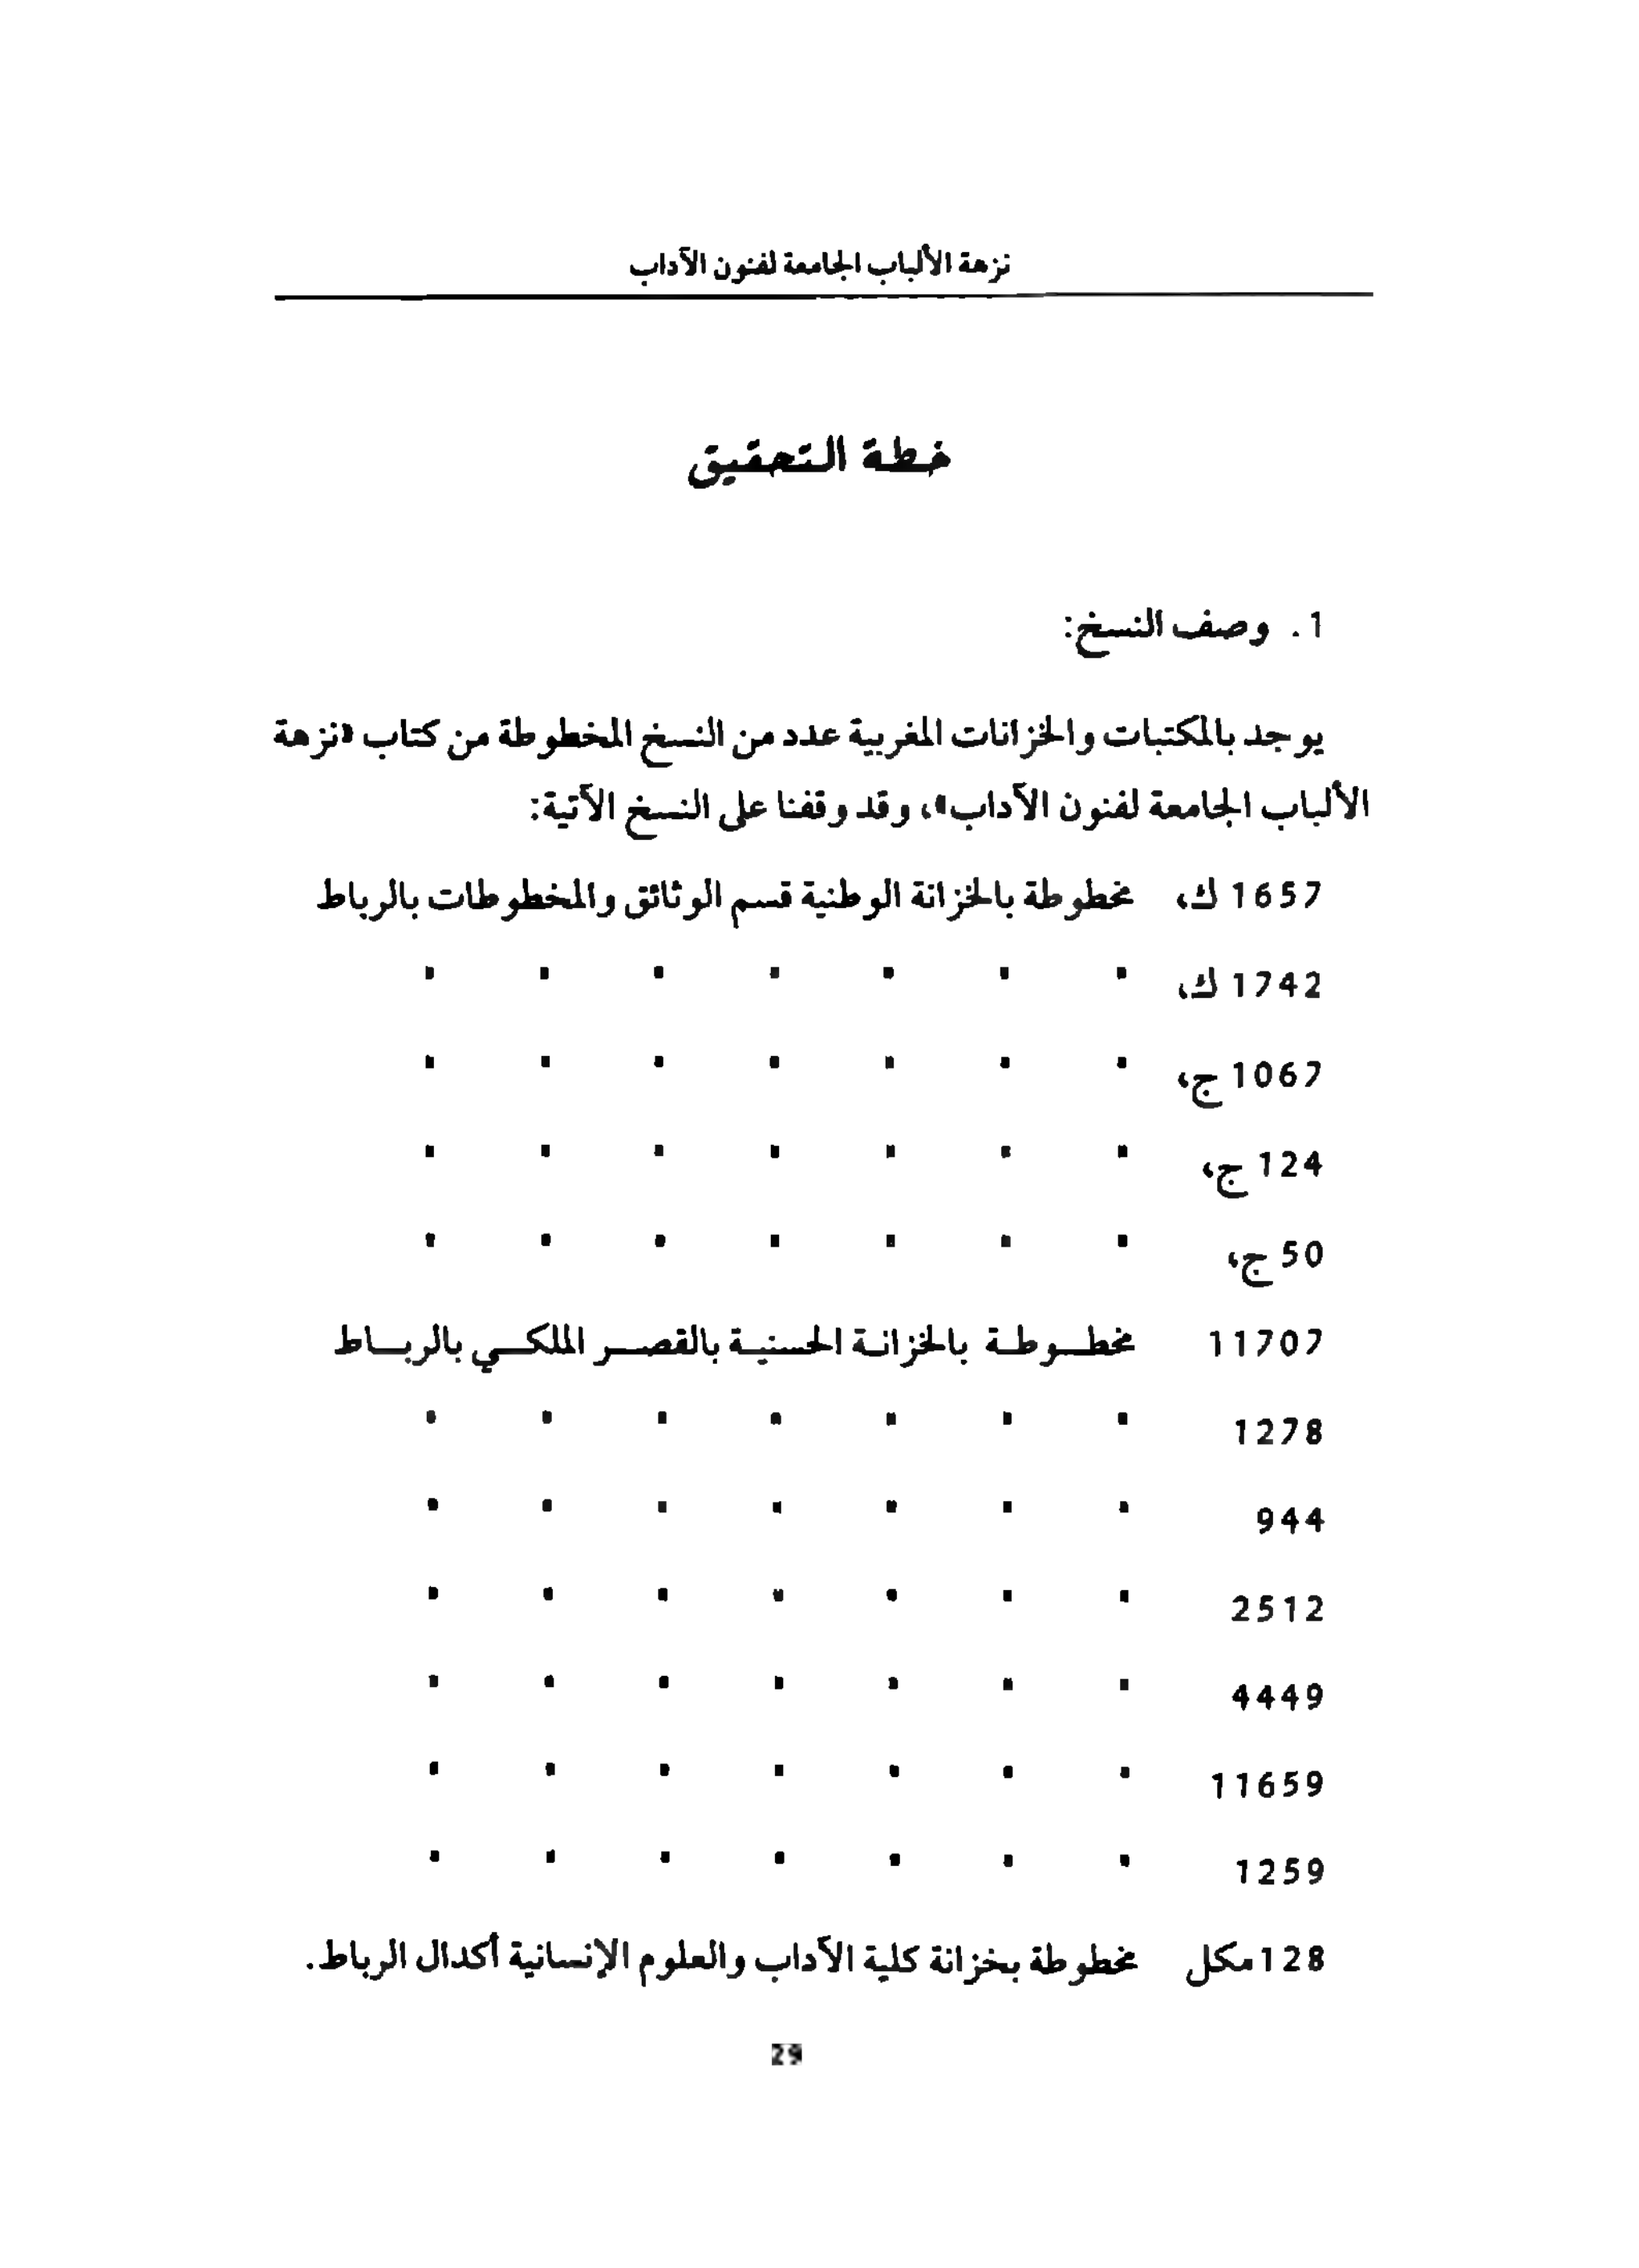 نزهة الألباب الجامعة لفنون الآداب
خطة التحقيق
1. وصف النسخ:
يوجد بالمكتبات والخزانات المغربية عدد من النسخ المخطوطة من كتاب «نزهة
الألباب الجامعة لفنون الآداب»، وقد وقفنا على النسخ الآتية:
1657 ك، مخطوطة بالخزانة الوطنية قسم الوثائق والمخطوطات بالرباط
1742 ك، " " " " " " "
1067 ج، " " " " " " "
124 ج، " " " " " " "
50 ج، " " " " " " "
11707 مخطوطة بالخزانة الحسنية بالقصر الملكي بالرباط
1278 " " " " " " "
944 " " " " " " "
2512 " " " " " " "
4449 " " " " " " "
11659 " " " " " " "
1259 " " " " " " "
128 مكل مخطوطة بخزانة كلية الآداب والعلوم الإنسانية أكدال الرباط.
29